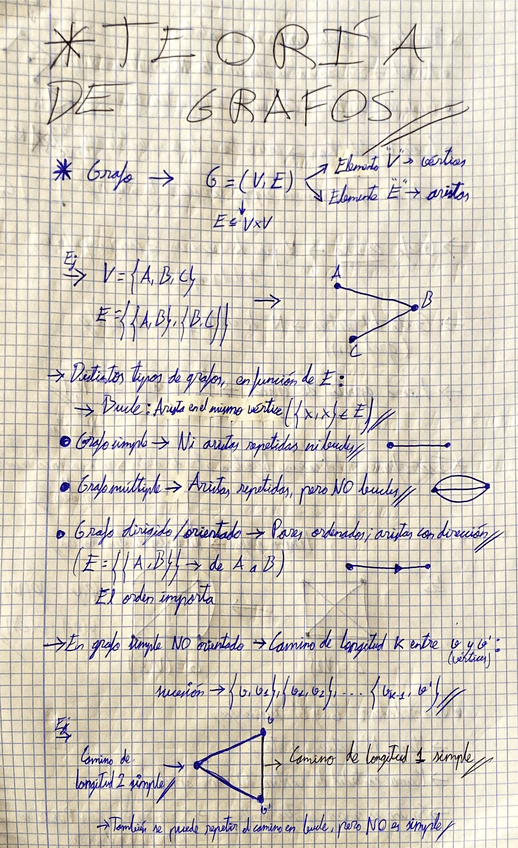 * TEORÍA
DE GRAFOS
* Grafo → G = (V, E) → Elemento "V" → vértices
→ Elemento "E" → aristas
↓
E ⊆ V×V
Ej
→ V = {A, B, C}
E = {{A, B}, {B, C}} →
A
B
C
→ Distintos tipos de grafos, en función de E:
→ Bucle: Arista en el mismo vértice ({x, x} ∈ E)
• Grafo simple → Ni aristas repetidas ni bucles
• Grafo múltiple → Aristas repetidas, pero NO bucles
• Grafo dirigido/orientado → Pares ordenados; aristas con dirección
(E = {{A, B}} → de A a B)
El orden importa
→ En grafo simple NO orientado → Camino de longitud K entre v y v':
(vértices)
sucesión → {v, v₁}, {v₁, v₂}, ... {vₖ₋₁, v'}
Ej
→
v
Camino de
longitud 2 simple →
→ Camino de longitud 1 simple
v'
→ También se puede repetir el camino en bucle, pero NO es simple